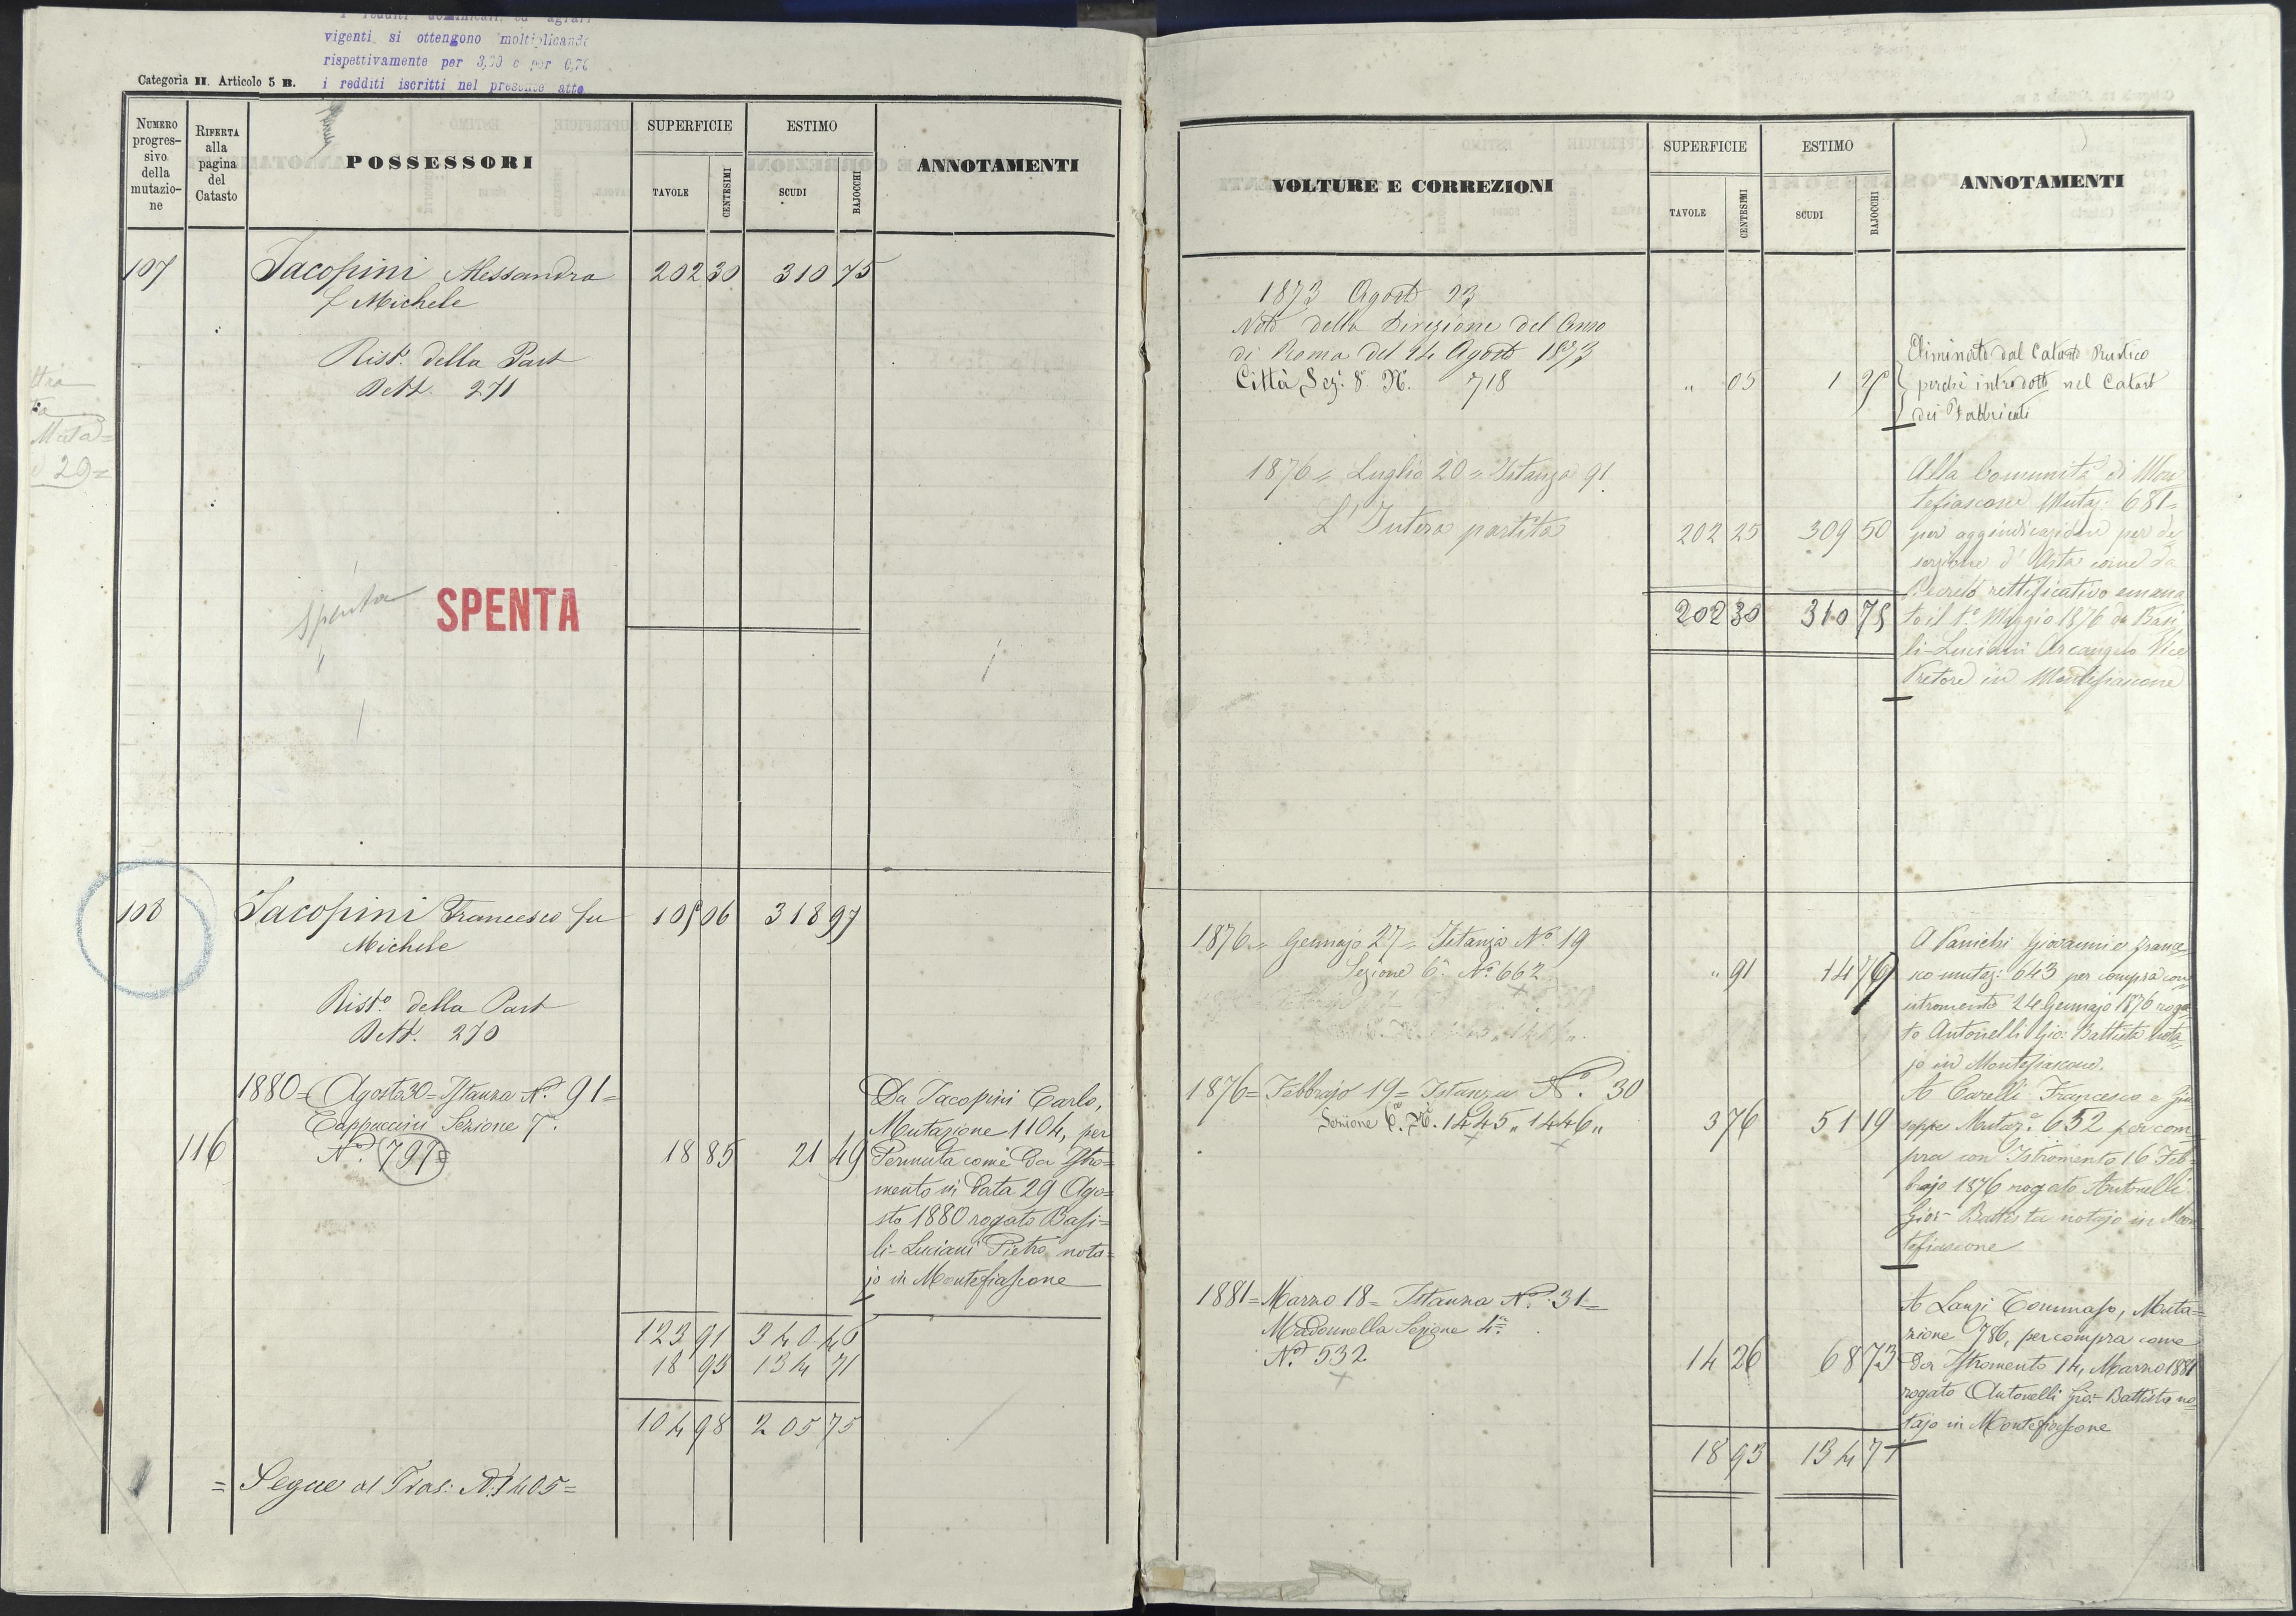 vigenti si ottengono moltiplicando
rispettivamente per 3,00 e per 0,70
i redditi iscritti nel presente atto
Categoria II. Articolo 5 B.
NUMERO progressivo della mutazione
RIFERTA alla pagina del Catasto
POSSESSORI
SUPERFICIE
TAVOLE
CENTESIMI
ESTIMO
SCUDI
BAJOCCHI
ANNOTAMENTI
107 Jacopini Alessandra 202 30 310 75
f Michele
Rist.º della Part
Dett. 271
spenta SPENTA
108 Jacopini Francesco fu 105 06 318 97
Michele
Rist.º della Part
Dett. 270
1880 = Agosto 30 = Istanza Nº 91 =
Cappuccini Sezione 7ª
116 Nº 791= 18 85 21 49
Da Jacopini Carlo,
Mutazione 1104, per
Permuta come da Istro=
mento in data 29 Ago=
sto 1880 rogato Basi=
li-Luciani Pietro nota=
jo in Montefiascone
123 91 340 46
18 93 134 71
104 98 205 75
= Segue al Tras: Nº 1405 =
VOLTURE E CORREZIONI
SUPERFICIE
TAVOLE
CENTESIMI
ESTIMO
SCUDI
BAJOCCHI
ANNOTAMENTI
1873 Agosto 23
Nota della Direzione del Censo
di Roma del 14 Agosto 1873
Città Sez: 8ª N. 718 " 05 1 25
Eliminato dal Catasto Rustico
perchè introdotto nel Catast
dei Fabbricati
1876 = Luglio 20 = Istanza 91
L'Intera partita 202 25 309 50
202 30 310 75
Alla Comunità di Mon
tefiascone Mutaz: 681=
per aggiudicazione per de
serzione d'Asta come da
Decreto rettificativo emana
to il 1º Maggio 1876 da Basi
li-Luciani Arcangelo Vice
Pretore in Montefiascone
1876 = Gennajo 27 = Istanza Nº 19
Sezione 6ª Nº 662 " 91 14 79
A Panichi Giovanni e France
sco mutaz: 643 per compra con
istromento 24 Gennajo 1876 roga
to Antonelli Gio: Battista nota
jo in Montefiascone.
1876 = Febbrajo 19 = Istanza Nº 30
Sezione 6ª Nº 1445 " 1446 " 3 76 51 19
A Carelli Francesco e Giu
seppe Mutazº 652 per com
pra con Istromento 16 Feb
brajo 1876 rogato Antonelli
Gio: Battista notajo in Mon
tefiascone
1881 = Marzo 18 = Istanza Nº 31 =
Madonnella Sezione 4ª
Nº 532 14 26 68 73
A Lanzi Tommaso, Muta=
zione 786, per compra come
da Istromento 14 Marzo 1881
rogato Antonelli Gio: Battista no=
tajo in Montefiascone
18 93 134 71